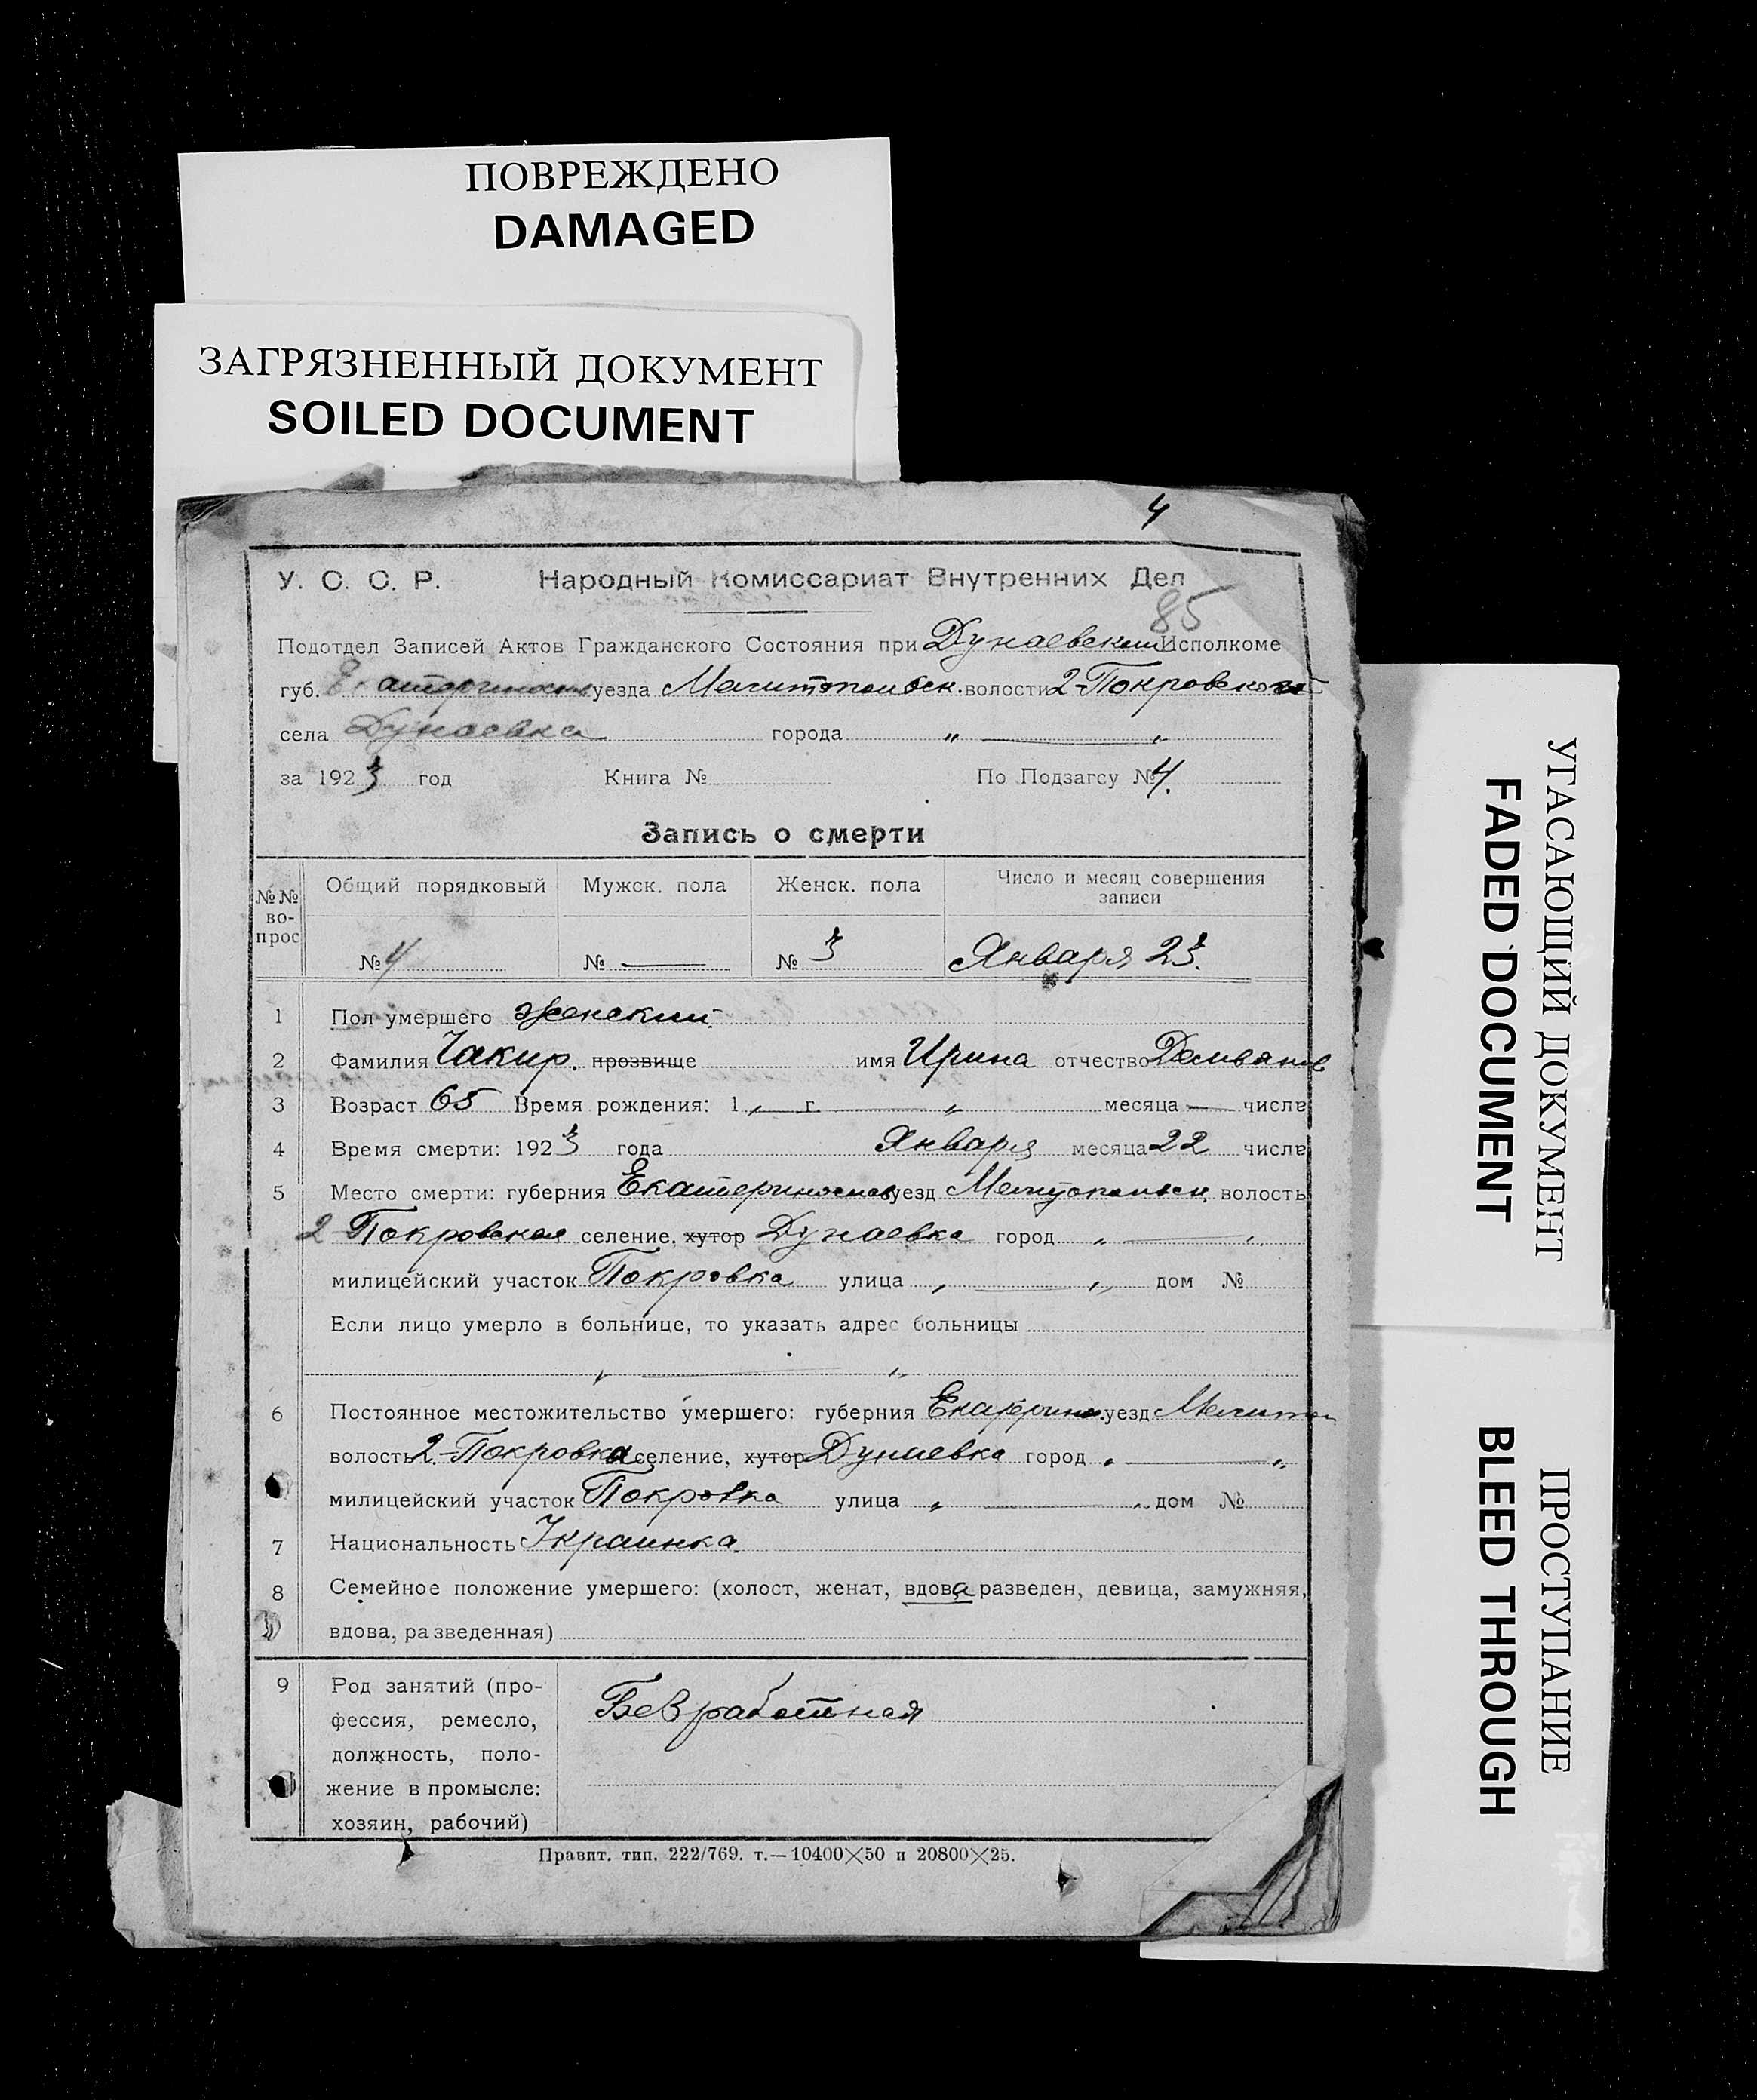 ПОВРЕЖДЕНО
DAMAGED
ЗАГРЯЗНЕННЫЙ ДОКУМЕНТ
SOILED DOCUMENT
4
У. С. С. Р. Народный Комиссариат Внутренних Дел
85
Подотдел Записей Актов Гражданского Состояния при Дунаевском Исполкоме
губ. уезда Мелитопольск. волости 2-Покровской
села Дунаевка города „ — „
за 1923 год Книга № По Подзагсу № 4.
Запись о смерти
№№ вопрос Общий порядковый Мужск. пола Женск. пола Число и месяц совершения записи
№ 4 № — № 3 Января 23.
1 Пол умершего женский
2 Фамилия Чакир. прозвище имя Ирина отчество
3 Возраст 65 Время рождения: 1 „ — г. — „ месяца — числа
4 Время смерти: 1923 года Января месяца 22 числа
5 Место смерти: губерния уезд волость
2 Покровская селение, хутор Дунаевка город „ — „
милицейский участок Покровка улица „ — „ дом №
Если лицо умерло в больнице, то указать адрес больницы
„ — „
6 Постоянное местожительство умершего: губерния Екатерин. уезд Мелитоп
волость 2-Покровка селение, хутор Дунаевка город „ — „
милицейский участок Покровка улица „ — „ дом №
7 Национальность Украинка.
8 Семейное положение умершего: (холост, женат, вдова разведен, девица, замужняя,
вдова, разведенная)
9 Род занятий (про-
фессия, ремесло,
должность, поло-
жение в промысле:
хозяин, рабочий)
Безработная
Правит. тип. 222/769. т.—10400×50 и 20800×25.
УГАСАЮЩИЙ ДОКУМЕНТ
FADED DOCUMENT
ПРОСТУПАНИЕ
BLEED THROUGH